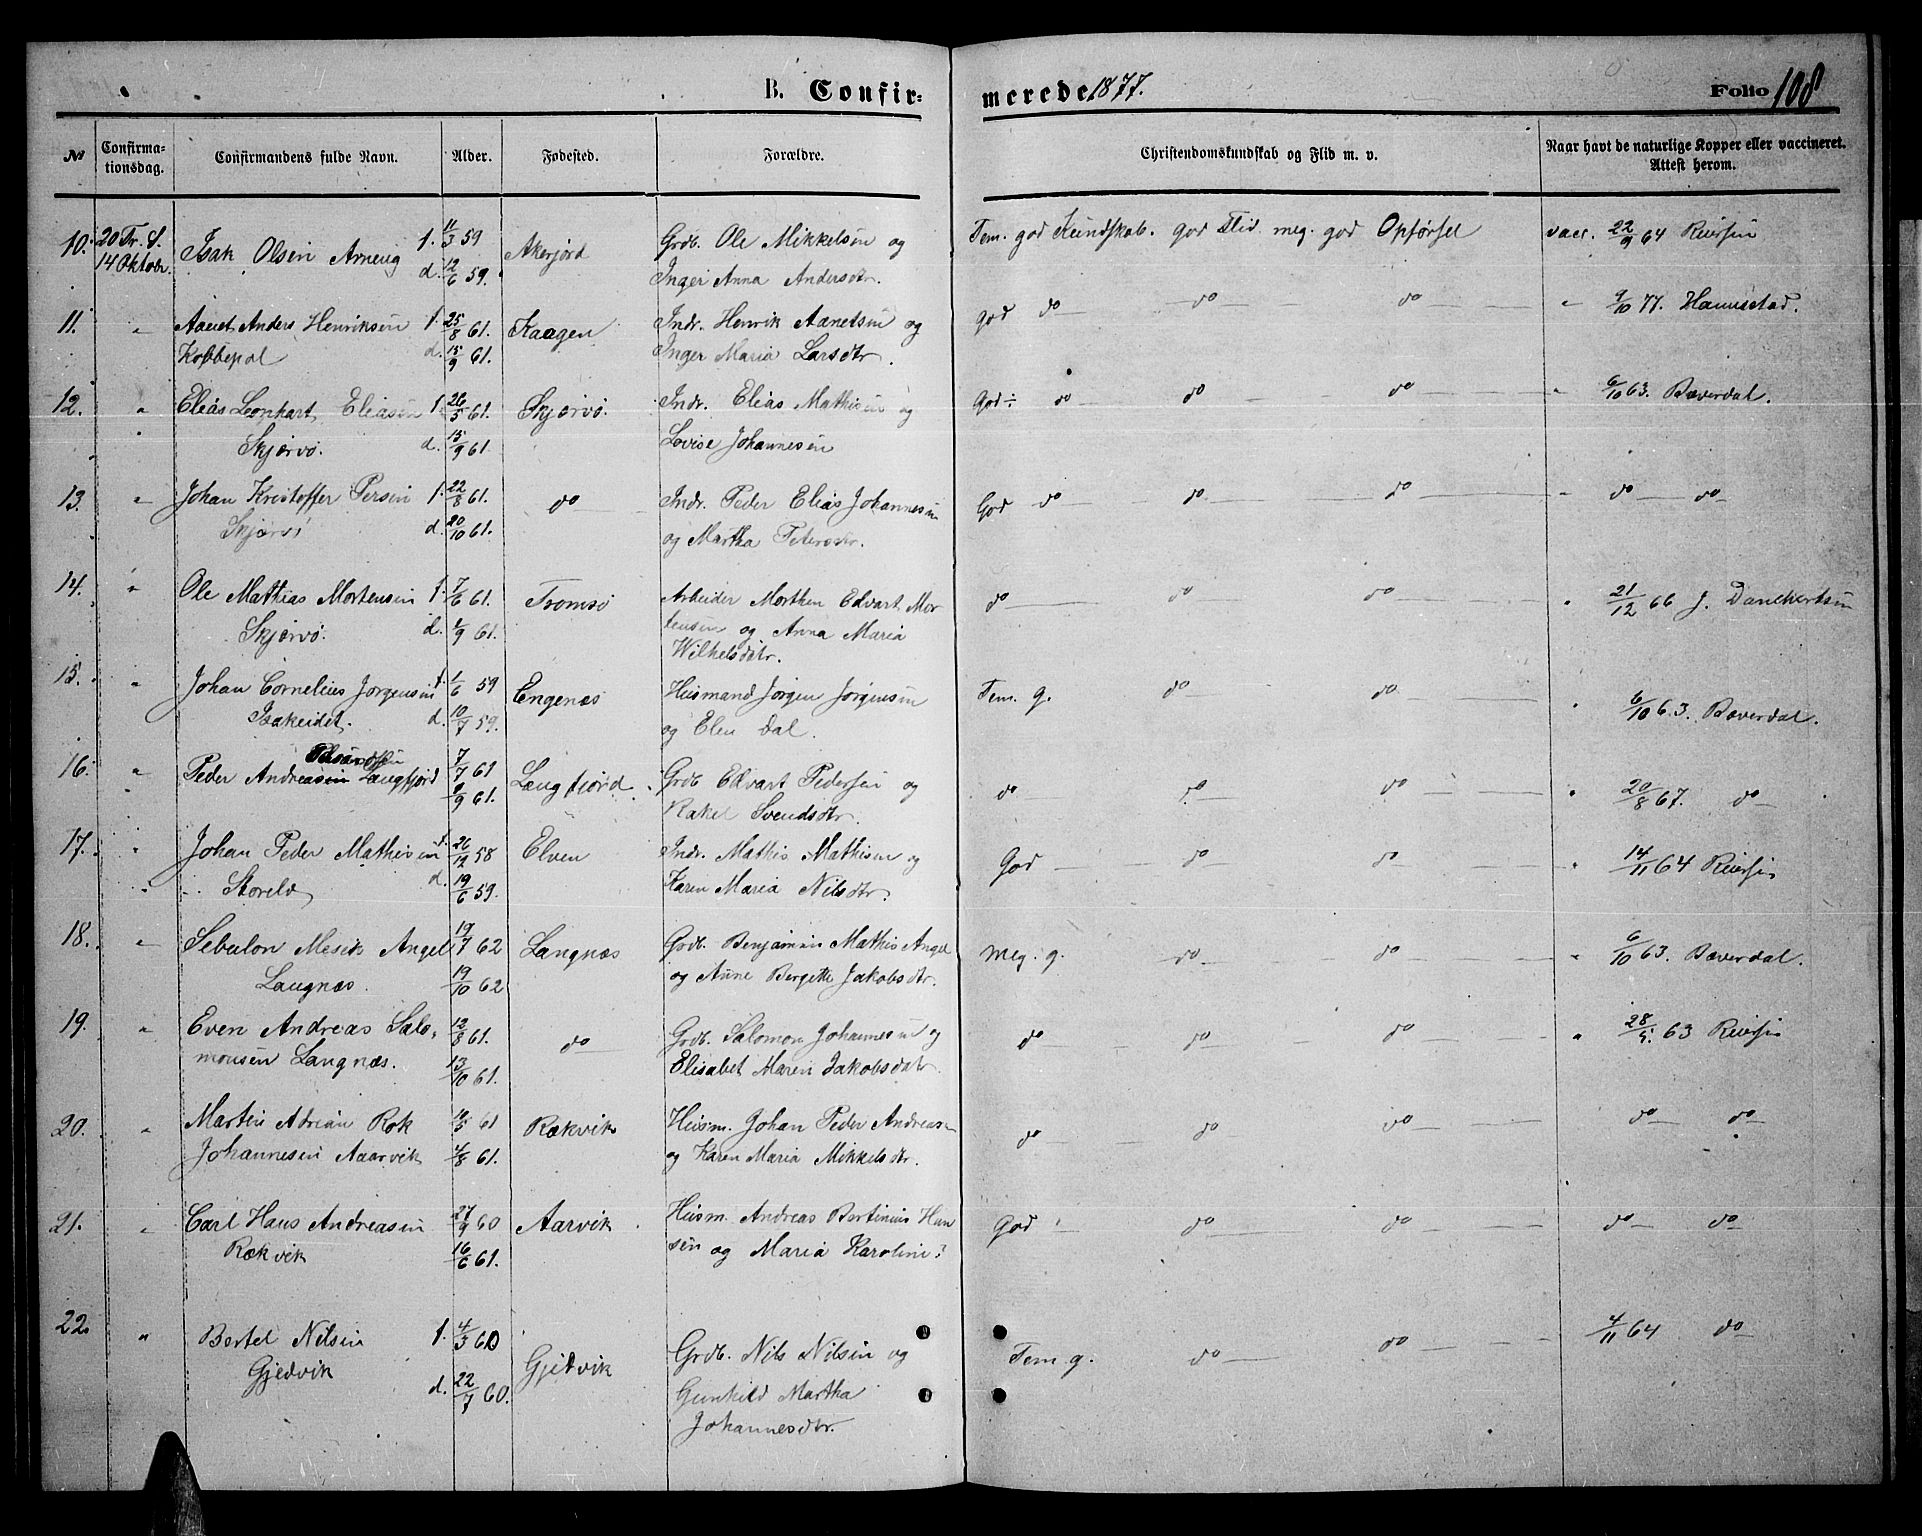 B. Confir=
merede 1877.
Folio 108
No
Confirma-
tionsdag.
Confirmandens fulde Navn.
Alder.
Fødested.
Forældre.
Christendomskundskab og Flid m. v.
Naar havt de naturlige Kopper eller vaccineret.
Attest herom.
10. 20 Tr. S. Isak Olsen f. 11/3 59 Akerfjord Grdb. Ole Mikkelsen og Tem. god Kundskab. god Flid. meg. god Opførsel vacc. 22/9 64 Reiersen
14 Oktobr. d. 12/6 59. Inger Anna Andersdtr.
11. " Aanet Anders Henriksen f. 25/8 61. Kaagen Indr. Henrik Aanetsen og god do do do " 9/10 77. Hannestad.
Kobbepol d. 15/9 61. Inger Maria Larsdtr.
12. " Elias Leonhart Eliasen f. 26/5 61. Skjærvø. Indr. Elias Mathisen og God÷ do do do " 6/10 63. Bæverdal.
Skjærvø. d. 15/9 61. Lovise Johannesen
13. " Johan Kristoffer Persen f. 22/8 61. do Indr. Peder Elias Johannesen God do do do " do do
Skjærvø d. 20/10 61. og Martha Petersdtr.
14. " Ole Mathias Mortensen f. 7/6 61. Tromsø Arbeider Morthen Edvart Mor do do do " 21/12 66 J. Danckertsen
Skjærvø. d. 1/9 61. tensen og Anna Maria
Wilhelsdtr.
15. " Johan Cornelius Jørgensen f. 1/6 59 Engenæs Husmand Jørgen Jørgensen Tem. g. do do " 6/10 63. Bæverdal.
Isakeidet. d. 10/7 59. og Elen Dal.
16. " Peder Andreasen Langfjord 7/7 61 Langfjord Grdb. Edvart Pedersen og do do do " 20/8 67. do
9/9 61. Rakel Svendsdtr.
17. " Johan Peder Mathisen f. 26/12 58 Elven Indr. Mathis Mathisen og God do do " 14/11 64 Reiersen
Storelv d. 19/6 59. Karen Maria Nilsdtr.
18. " Sebulon Mesik Angel 19/7 62 Langnæs Grdb. Benjamin Mathis Angel Meg. g. do do " 6/10 63. Bæverdal.
Langnæs. 19/10 62 og Anne Bergitte Jakobsdtr.
19. " Even Andreas Salo- 12/8 61. do Grdb. Salomon Johannesen og do do do " 28/5 63 Reiersen
monsen Langnæs. 13/10 61. Elisabet Maren Jakobsdatr.
20. " Martin Adrian Rok 10/5 61 Rækvik Husm. Johan Peder Andreasen do do do do do
Johannesen Aarvik 4/8 61. og Karen Maria Mikkelsdtr.
21. " Carl Hans Andreasen 27/9 60 Aarvik Husm. Andreas Bertinius Han God do do do do
Rækvik 16/6 61. sen og Maria Karoline?
22. " Bertel Nilsen f. 4/3 60 Gjedvik Grdb. Nils Nilsen og Tem g. do do 4/11 64 do
Gjedvik d. 22/7 60. Gunhild Martha
Johannesdtr.